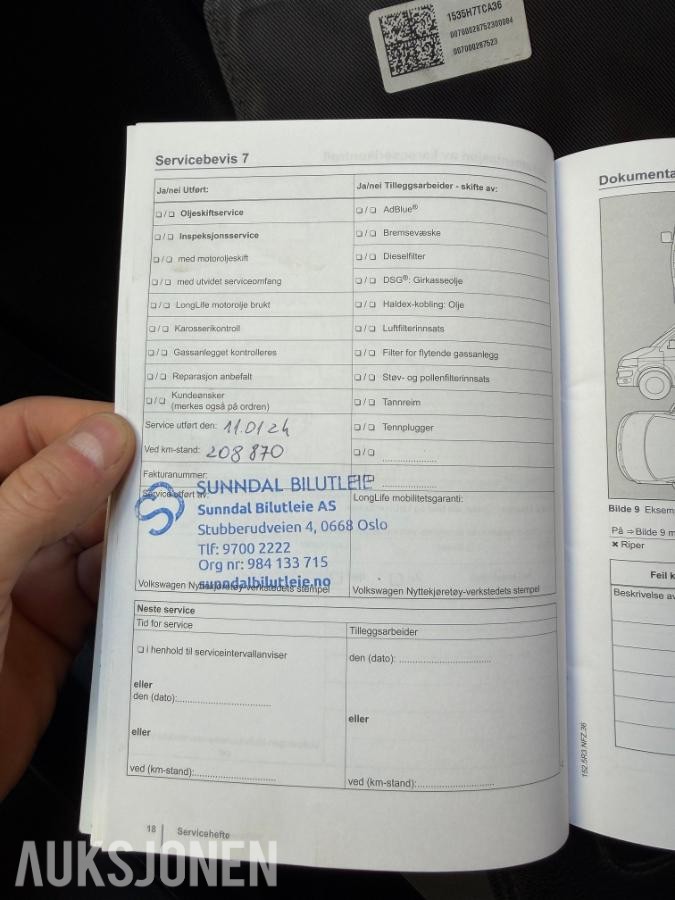 1535H7TCA36
00700028752300084
007000287523
Servicebevis 7
Ja/nei Utført:
❏/❏ Oljeskiftservice
❏/❏ Inspeksjonsservice
❏/❏ med motoroljeskift
❏/❏ med utvidet serviceomfang
❏/❏ LongLife motorolje brukt
❏/❏ Karosserikontroll
❏/❏ Gassanlegget kontrolleres
❏/❏ Reparasjon anbefalt
❏/❏ Kundeønsker
(merkes også på ordren)
Service utført den: 11.0124
Ved km-stand: 208 870
Fakturanummer:
Service utført av:
Ja/nei Tilleggsarbeider - skifte av:
❏/❏ AdBlue®
❏/❏ Bremsevæske
❏/❏ Dieselfilter
❏/❏ DSG®: Girkasseolje
❏/❏ Haldex-kobling: Olje
❏/❏ Luftfilterinnsats
❏/❏ Filter for flytende gassanlegg
❏/❏ Støv- og pollenfilterinnsats
❏/❏ Tannreim
❏/❏ Tennplugger
❏/❏ ....................
....................
LongLife mobilitetsgaranti:
SUNNDAL BILUTLEIE
Sunndal Bilutleie AS
Stubberudveien 4, 0668 Oslo
Tlf: 9700 2222
Org nr: 984 133 715
sunndalbilutleie.no
Volkswagen Nyttekjøretøy-verkstedets stempel
Volkswagen Nyttekjøretøy-verkstedets stempel
Neste service
Tid for service
❏ i henhold til serviceintervallanviser
eller
den (dato):..............................
eller
ved (km-stand):..........................
Tilleggsarbeider
den (dato): ..............................
eller
ved (km-stand):.........................
18 Servicehefte
Dokumenta
Bilde 9 Eksem
På ⇒ Bilde 9 m
✖ Riper
Feil k
Beskrivelse av
152.5R3.NFZ.36
AUKSJONEN